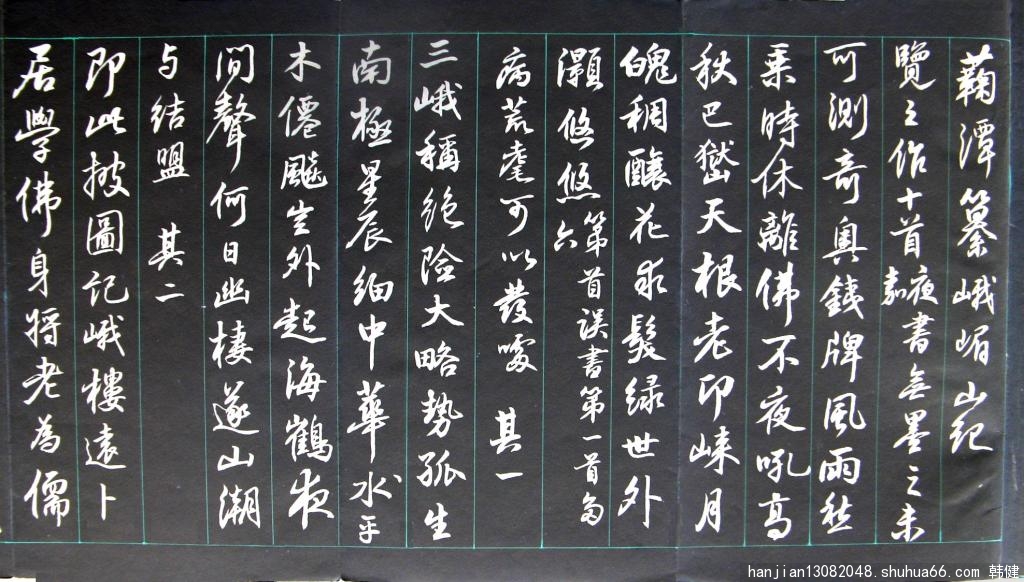 菊潭纂峨嵋山紀
覽之作十首嘉夜書無墨之未
可測奇奧錢牌風雨愁
乘時休離佛不夜吼高
秋巴嶽天根老印崍月
魄稠釀花水髮绿世外
灝悠悠第六首误書第一首為
病荒耄可以發嚎 其一
三峨稱絶險大略勢孤生
南極星辰细中華水平
木僊飈生外起海鶴夜
间聲何日幽棲遂山潮
与结盟 其二
即此披圖记峨樓遠卜
居學佛身将老為儒
hanjian13082048.shuhua66.com 韩健